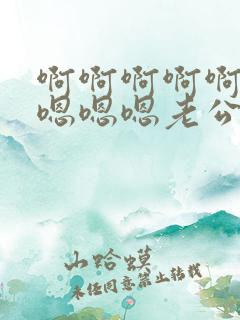 啊啊啊啊啊
嗯嗯嗯老公
山蛤蟆
未经同意禁止转载